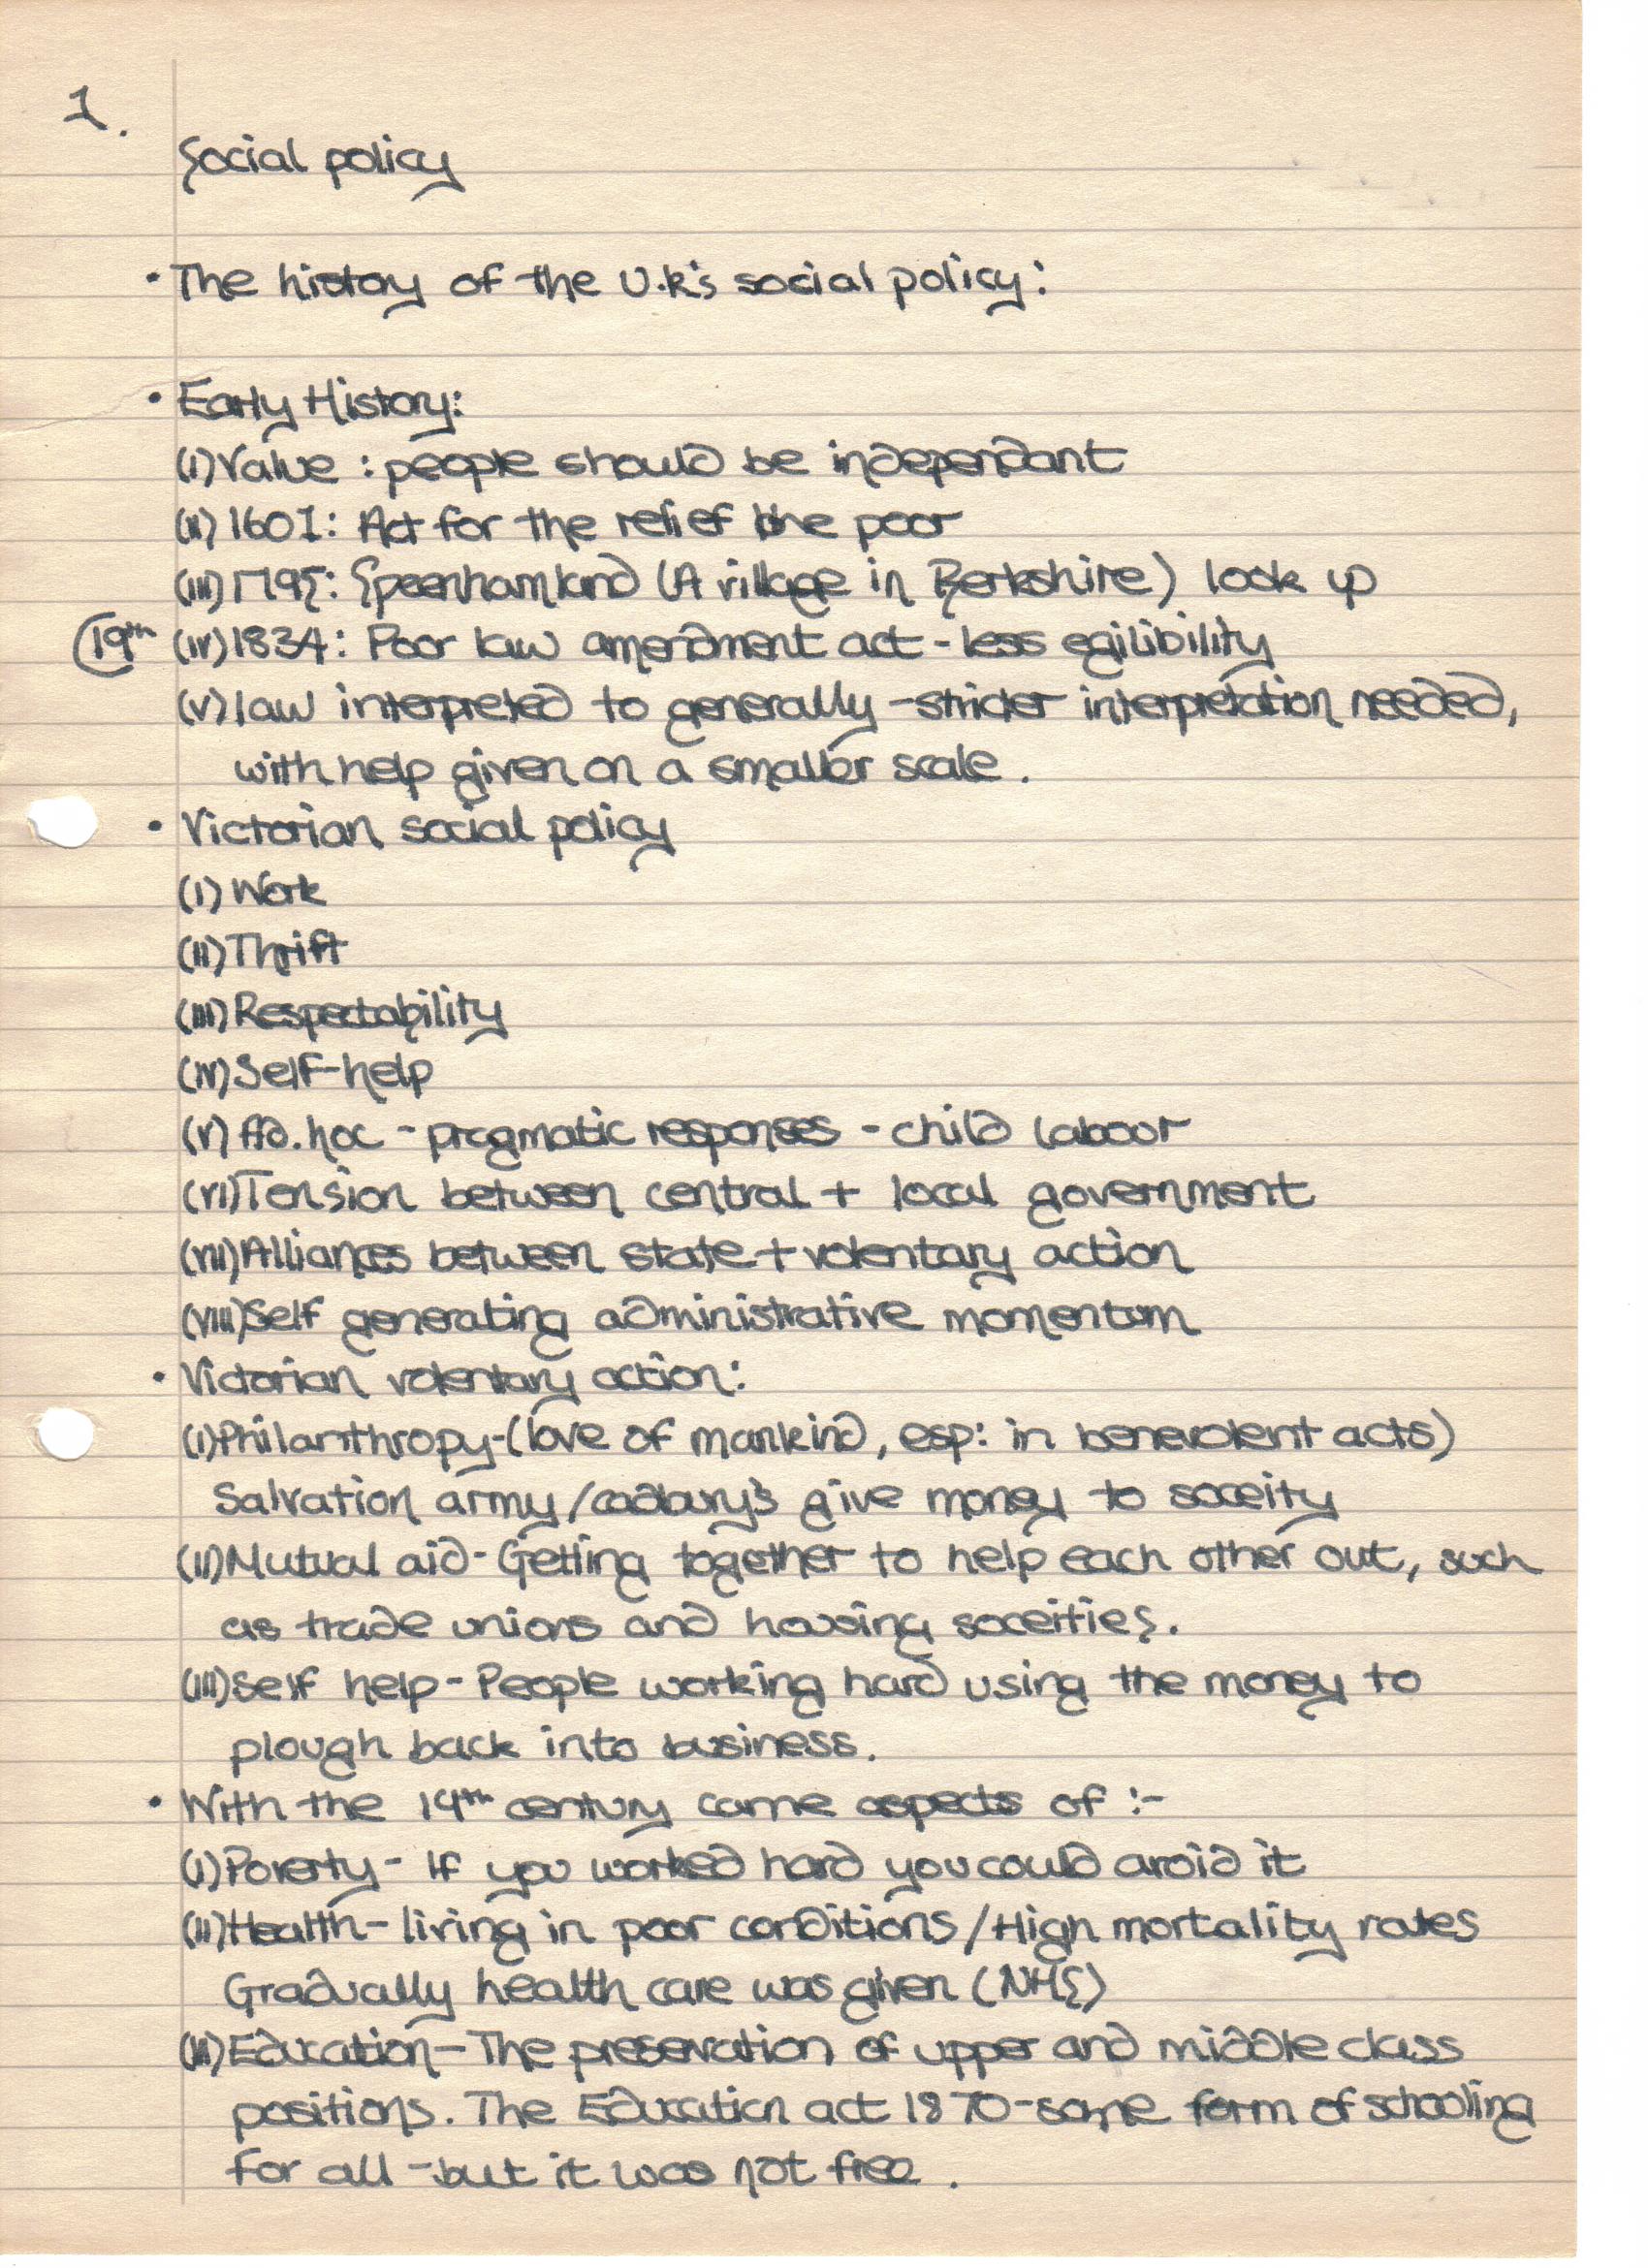 1.
Social policy
• The history of the U.K's social policy:
• Early History:
(i) Value : people should be independant
(ii) 1601: Act for the relief the poor
(iii) 1795: Speenhamland (A village in Berkshire) look up
19th (iv) 1834: Poor law amendment act - less egilibility
(v) law interpreted to generally - stricter interpretation needed,
with help given on a smaller scale.
• Victorian social policy
(i) Work
(ii) Thrift
(iii) Respectability
(iv) Self-help
(v) Ad.hoc - pragmatic responses - child labour
(vi) Tension between central + local government
(vii) Alliances between state + volentary action
(viii) Self generating administrative momentum
• Victorian volentary action:
(i) Philanthropy - (love of mankind, esp: in benevolent acts)
Salvation army / cadbury's give money to soceity
(ii) Mutual aid - Getting together to help each other out, such
as trade unions and housing soceities.
(iii) Self help - People working hard using the money to
plough back into business.
• With the 19th century came aspects of :-
(i) Poverty - If you worked hard you could avoid it
(ii) Health - living in poor conditions / High mortality rates
Gradually health care was given (NHS)
(iii) Education - The preservation of upper and middle class
positions. The Education act 1870 - some form of schooling
for all - but it was not free.